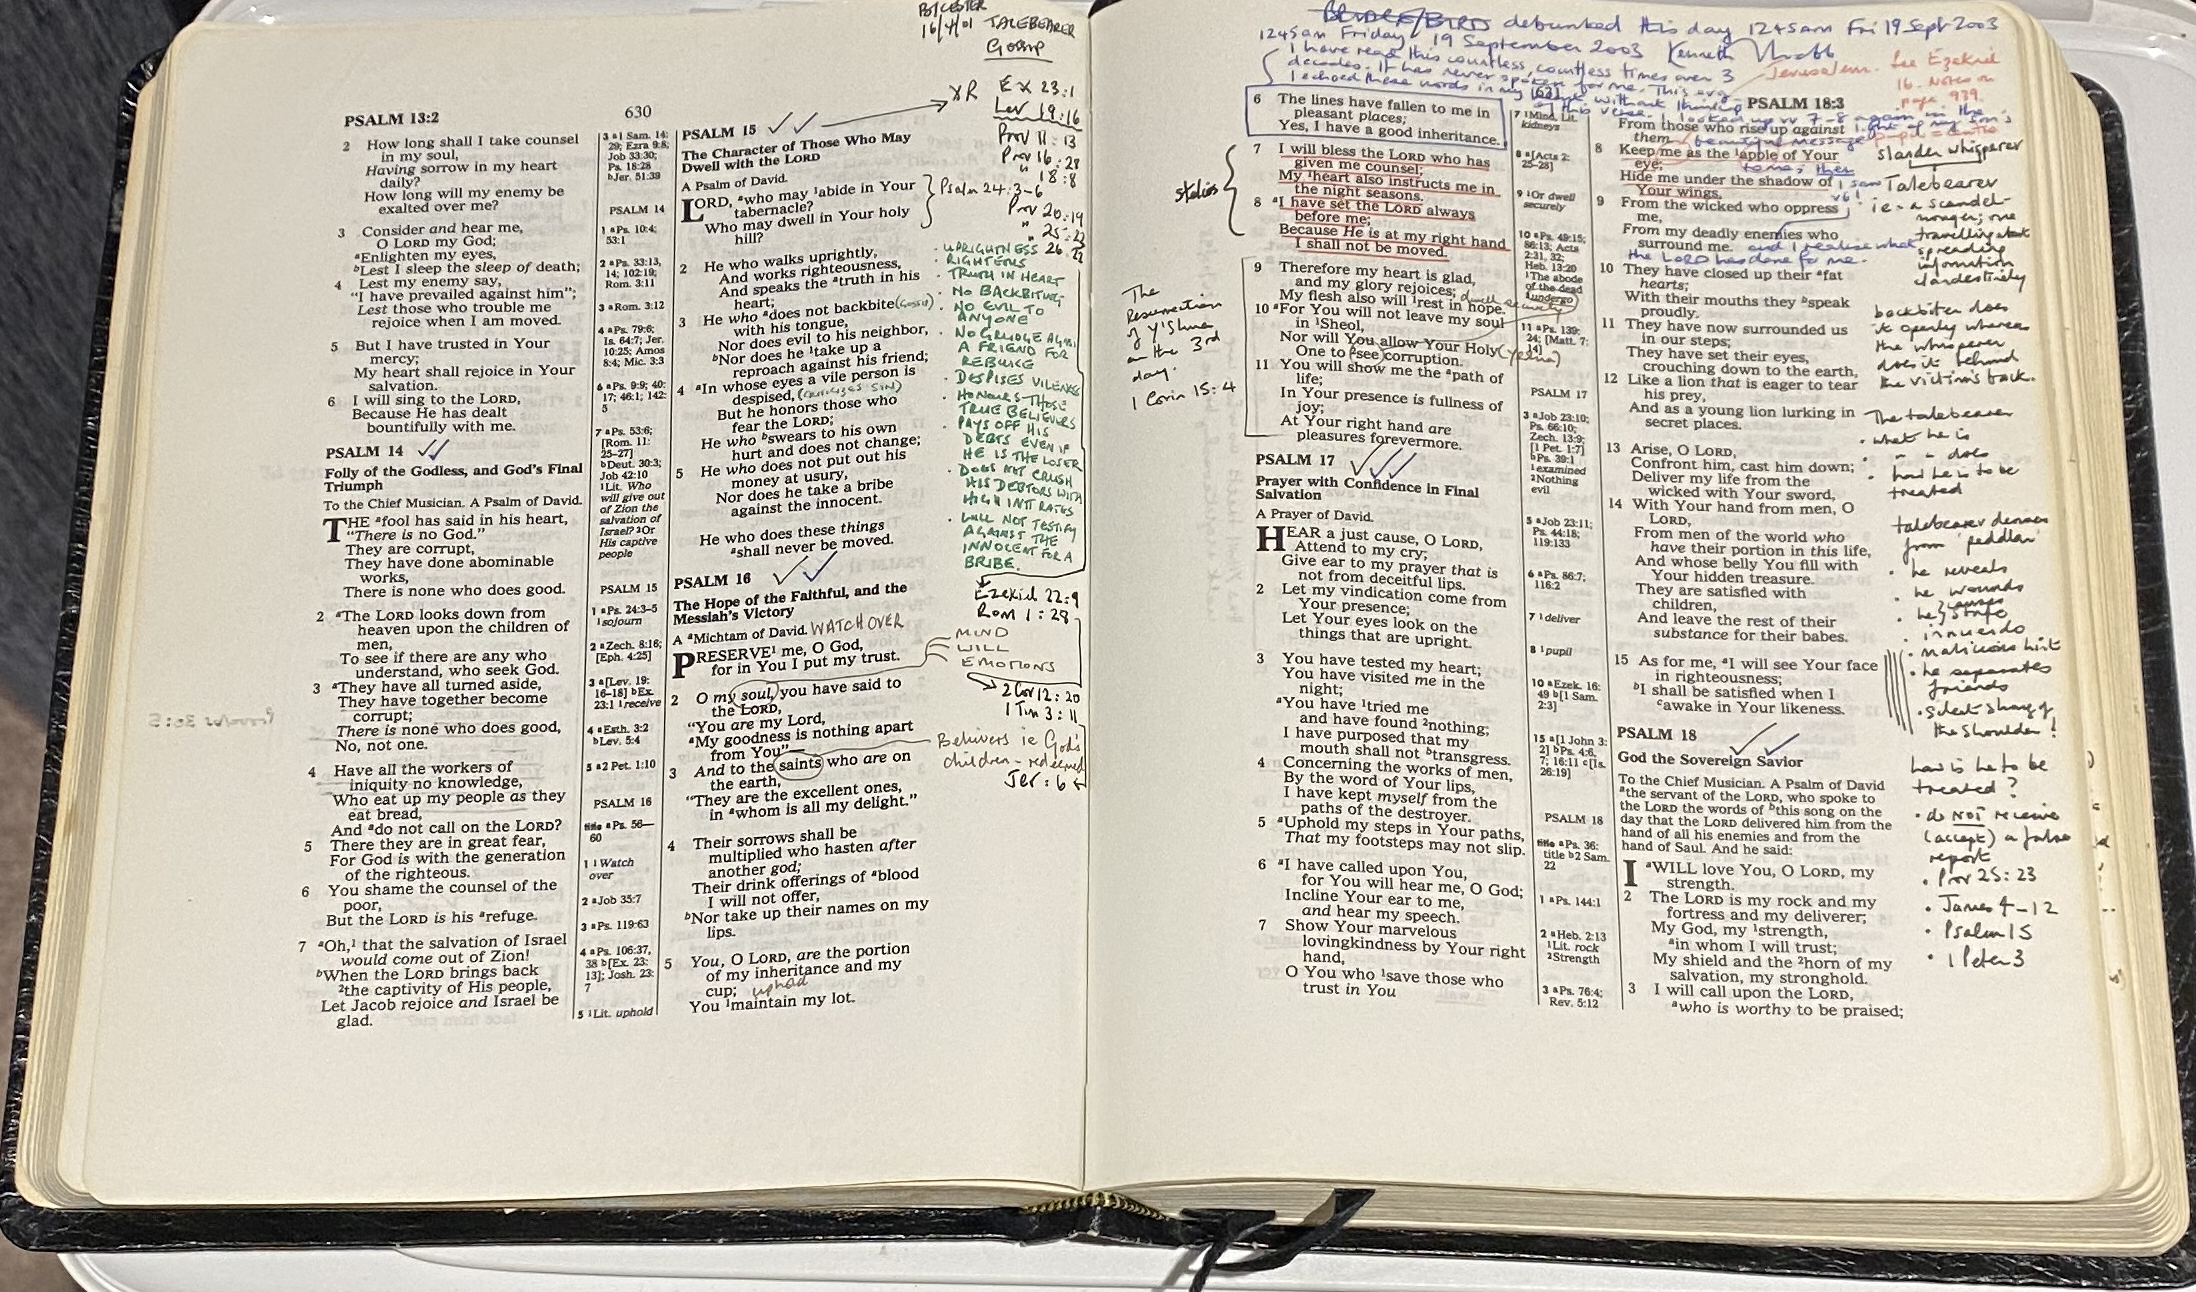 BICESTER
16/4/01 TALEBEARER
GOSSIP
PSALM 13:2
630
2 How long shall I take counsel
in my soul,
Having sorrow in my heart
daily?
How long will my enemy be
exalted over me?
3 Consider and hear me,
O LORD my God;
aEnlighten my eyes,
bLest I sleep the sleep of death;
4 Lest my enemy say,
"I have prevailed against him";
Lest those who trouble me
rejoice when I am moved.
5 But I have trusted in Your
mercy;
My heart shall rejoice in Your
salvation.
6 I will sing to the LORD,
Because He has dealt
bountifully with me.
PSALM 14
Folly of the Godless, and God's Final
Triumph
To the Chief Musician. A Psalm of David.
THE afool has said in his heart,
"There is no God."
They are corrupt,
They have done abominable
works,
There is none who does good.
2 aThe LORD looks down from
heaven upon the children of
men,
To see if there are any who
understand, who seek God.
3 aThey have all turned aside,
They have together become
corrupt;
There is none who does good,
No, not one.
4 Have all the workers of
iniquity no knowledge,
Who eat up my people as they
eat bread,
And ado not call on the LORD?
5 There they are in great fear,
For God is with the generation
of the righteous.
6 You shame the counsel of the
poor,
But the LORD is his arefuge.
7 aOh,1 that the salvation of Israel
would come out of Zion!
bWhen the LORD brings back
2the captivity of His people,
Let Jacob rejoice and Israel be
glad.
3 a1 Sam. 14:
29; Ezra 9:8;
Job 33:30;
Ps. 18:28
bJer. 51:39
PSALM 14
1 aPs. 10:4;
53:1
2 aPs. 33:13,
14; 102:19;
Rom. 3:11
3 aRom. 3:12
4 aPs. 79:6;
Is. 64:7; Jer.
10:25; Amos
8:4; Mic. 3:3
6 aPs. 9:9; 40:
17; 46:1; 142:
5
7 aPs. 53:6;
[Rom. 11:
25-27]
bDeut. 30:3;
Job 42:10
1Lit. Who
will give out
of Zion the
salvation of
Israel? 2Or
His captive
people
PSALM 15
1 aPs. 24:3-5
1sojourn
2 aZech. 8:16;
[Eph. 4:25]
3 a[Lev. 19:
16-18] bEx.
23:1 1receive
4 aEsth. 3:2
bLev. 5:4
5 a2 Pet. 1:10
PSALM 16
title aPs. 56—
60
1 1Watch
over
2 aJob 35:7
3 aPs. 119:63
4 aPs. 106:37,
38 b[Ex. 23:
13]; Josh. 23:
7
5 1Lit. uphold
PSALM 15
The Character of Those Who May
Dwell with the LORD
A Psalm of David.
LORD, awho may 1abide in Your
tabernacle?
Who may dwell in Your holy
hill?
2 He who walks uprightly,
And works righteousness,
And speaks the atruth in his
heart;
3 He who adoes not backbite (Gossip)
with his tongue,
Nor does evil to his neighbor,
bNor does he 1take up a
reproach against his friend;
4 aIn whose eyes a vile person is
despised, (criticizes SIN)
But he honors those who
fear the LORD;
He who bswears to his own
hurt and does not change;
5 He who does not put out his
money at usury,
Nor does he take a bribe
against the innocent.
He who does these things
ashall never be moved.
PSALM 16
The Hope of the Faithful, and the
Messiah's Victory
A aMichtam of David. WATCH OVER
PRESERVE1 me, O God,
for in You I put my trust.
2 O my soul, you have said to
the LORD,
"You are my Lord,
aMy goodness is nothing apart
from You"—
3 And to the saints who are on
the earth,
"They are the excellent ones,
in awhom is all my delight."
4 Their sorrows shall be
multiplied who hasten after
another god;
Their drink offerings of ablood
I will not offer,
bNor take up their names on my
lips.
5 You, O LORD, are the portion
of my inheritance and my
cup; uphold
You 1maintain my lot.
XR Ex 23:1
Lev 19:16
Prov 11:13
Prov 16:28
" 18:8
Psalm 24:3-6
Prov 20:19
" 25:23
26:22
· UPRIGHTNESS
· RIGHTEOUS
· TRUTH IN HEART
· NO BACKBITING
· NO EVIL TO
ANYONE
· NO GRUDGE AGAINST
A FRIEND FOR
REBUKE
· DESPISES VILENESS
· HONOURS THOSE
TRUE BELIEVERS
· PAYS OFF HIS
DEBTS EVEN IF
HE IS THE LOSER
· DOES NOT CRUSH
HIS DEBTORS WITH
HIGH INT RATES
· WILL NOT TESTIFY
AGAINST THE
INNOCENT FOR A
BRIBE.
Ezekiel 22:9
Rom 1:28
MIND
WILL
EMOTIONS
2 Cor 12:20
1 Tim 3:11
Believers ie God's
children - redeemed
Jer : 6
BRIDLE/BIRDS debunked this day 1245am Fri 19 Sept 2003
1245am Friday 19 September 2003 Kenneth
I have read this countless, countless times over 3
decades. It has never spoken for me. This eve
I echoed these words in my
without thinking
Jerusalem. See Ezekiel
16. Notes on
page 939.
PSALM 18:3
6 The lines have fallen to me in
pleasant places;
Yes, I have a good inheritance.
7 I will bless the LORD who has
given me counsel;
My 1heart also instructs me in
the night seasons.
8 aI have set the LORD always
before me;
Because He is at my right hand
I shall not be moved.
9 Therefore my heart is glad,
and my glory rejoices;
My flesh also will 1rest in hope. dwell securely
10 aFor You will not leave my soul
in 1Sheol,
Nor will You allow Your Holy
One to 2see corruption.
11 You will show me the apath of
life;
In Your presence is fullness of
joy;
At Your right hand are
pleasures forevermore.
The
Resurrection
of Y'Shua
on the 3rd
day.
1 Corin 15:4
PSALM 17
Prayer with Confidence in Final
Salvation
A Prayer of David.
HEAR a just cause, O LORD,
Attend to my cry;
Give ear to my prayer that is
not from deceitful lips.
2 Let my vindication come from
Your presence;
Let Your eyes look on the
things that are upright.
3 You have tested my heart;
You have visited me in the
night;
aYou have 1tried me
and have found 2nothing;
I have purposed that my
mouth shall not btransgress.
4 Concerning the works of men,
By the word of Your lips,
I have kept myself from the
paths of the destroyer.
5 aUphold my steps in Your paths,
That my footsteps may not slip.
6 aI have called upon You,
for You will hear me, O God;
Incline Your ear to me,
and hear my speech.
7 Show Your marvelous
lovingkindness by Your right
hand,
O You who 1save those who
trust in You
7 1Mind, Lit.
kidneys
8 a[Acts 2:
25-28]
9 1Or dwell
securely
10 aPs. 49:15;
86:13; Acts
2:31, 32;
Heb. 13:20
1The abode
of the dead
2undergo
11 aPs. 139:
24; [Matt. 7:
14]
PSALM 17
3 aJob 23:10;
Ps. 66:10;
Zech. 13:9;
[1 Pet. 1:7]
bPs. 39:1
1examined
2Nothing
evil
5 aJob 23:11;
Ps. 44:18;
119:133
6 aPs. 86:7;
116:2
7 1deliver
8 1pupil
10 aEzek. 16:
49 b[1 Sam.
2:3]
15 a[1 John 3:
2] bPs. 4:6,
7; 16:11 c[Is.
26:19]
PSALM 18
title aPs. 36:
title b2 Sam.
22
1 aPs. 144:1
2 aHeb. 2:13
1Lit. rock
2Strength
3 aPs. 76:4;
Rev. 5:12
From those who rise up against
them
8 Keep me as the 1apple of Your
eye;
Hide me under the shadow of
Your wings,
9 From the wicked who oppress
me,
From my deadly enemies who
surround me. and I realise what
the LORD has done for me.
10 They have closed up their afat
hearts;
With their mouths they bspeak
proudly.
11 They have now surrounded us
in our steps;
They have set their eyes,
crouching down to the earth,
12 Like a lion that is eager to tear
his prey,
And as a young lion lurking in
secret places.
13 Arise, O LORD,
Confront him, cast him down;
Deliver my life from the
wicked with Your sword,
14 With Your hand from men, O
LORD,
From men of the world who
have their portion in this life,
And whose belly You fill with
Your hidden treasure.
They are satisfied with
children,
And leave the rest of their
substance for their babes.
15 As for me, aI will see Your face
in righteousness;
bI shall be satisfied when I
cawake in Your likeness.
PSALM 18
God the Sovereign Savior
To the Chief Musician. A Psalm of David
athe servant of the LORD, who spoke to
the LORD the words of bthis song on the
day that the LORD delivered him from the
hand of all his enemies and from the
hand of Saul. And he said:
I aWILL love You, O LORD, my
strength.
2 The LORD is my rock and my
fortress and my deliverer;
My God, my 1strength,
ain whom I will trust;
My shield and the 2horn of my
salvation, my stronghold.
3 I will call upon the LORD,
awho is worthy to be praised;
slander whisperer
Talebearer
ie. a scandel-
monger; one
travelling about
spreading
information
clandestinely
backbiter does
it openly whereas
the whisperer
does it behind
the victim's back.
The talebearer
· what he is
· " " does
· how he is to be
treated
talebearer derives
from 'peddlar'
· he reveals
· he wounds
· he causes strife
· innuendo
· malicious hint
· he separates
friends
· silent shrug of
the shoulder!
how is he to be
treated?
· do NOT receive
(accept) a false
report
· Prov 25:23
· James 4-12
· Psalm 15
· 1 Peter 3